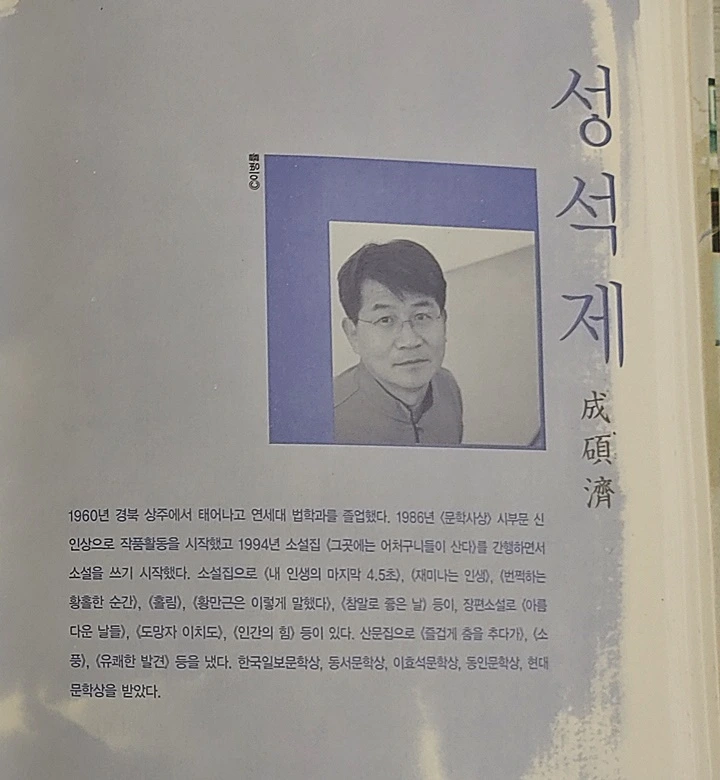 성석제
成碩濟
©이병률
1960년 경북 상주에서 태어나고 연세대 법학과를 졸업했다. 1986년 〈문학사상〉 시부문 신
인상으로 작품활동을 시작했고 1994년 소설집 〈그곳에는 어처구니들이 산다〉를 간행하면서
소설을 쓰기 시작했다. 소설집으로 〈내 인생의 마지막 4.5초〉, 〈재미나는 인생〉, 〈번쩍하는
황홀한 순간〉, 〈홀림〉, 〈황만근은 이렇게 말했다〉, 〈참말로 좋은 날〉 등이, 장편소설로 〈아름
다운 날들〉, 〈도망자 이치도〉, 〈인간의 힘〉 등이 있다. 산문집으로 〈즐겁게 춤을 추다가〉, 〈소
풍〉, 〈유쾌한 발견〉 등을 냈다. 한국일보문학상, 동서문학상, 이효석문학상, 동인문학상, 현대
문학상을 받았다.